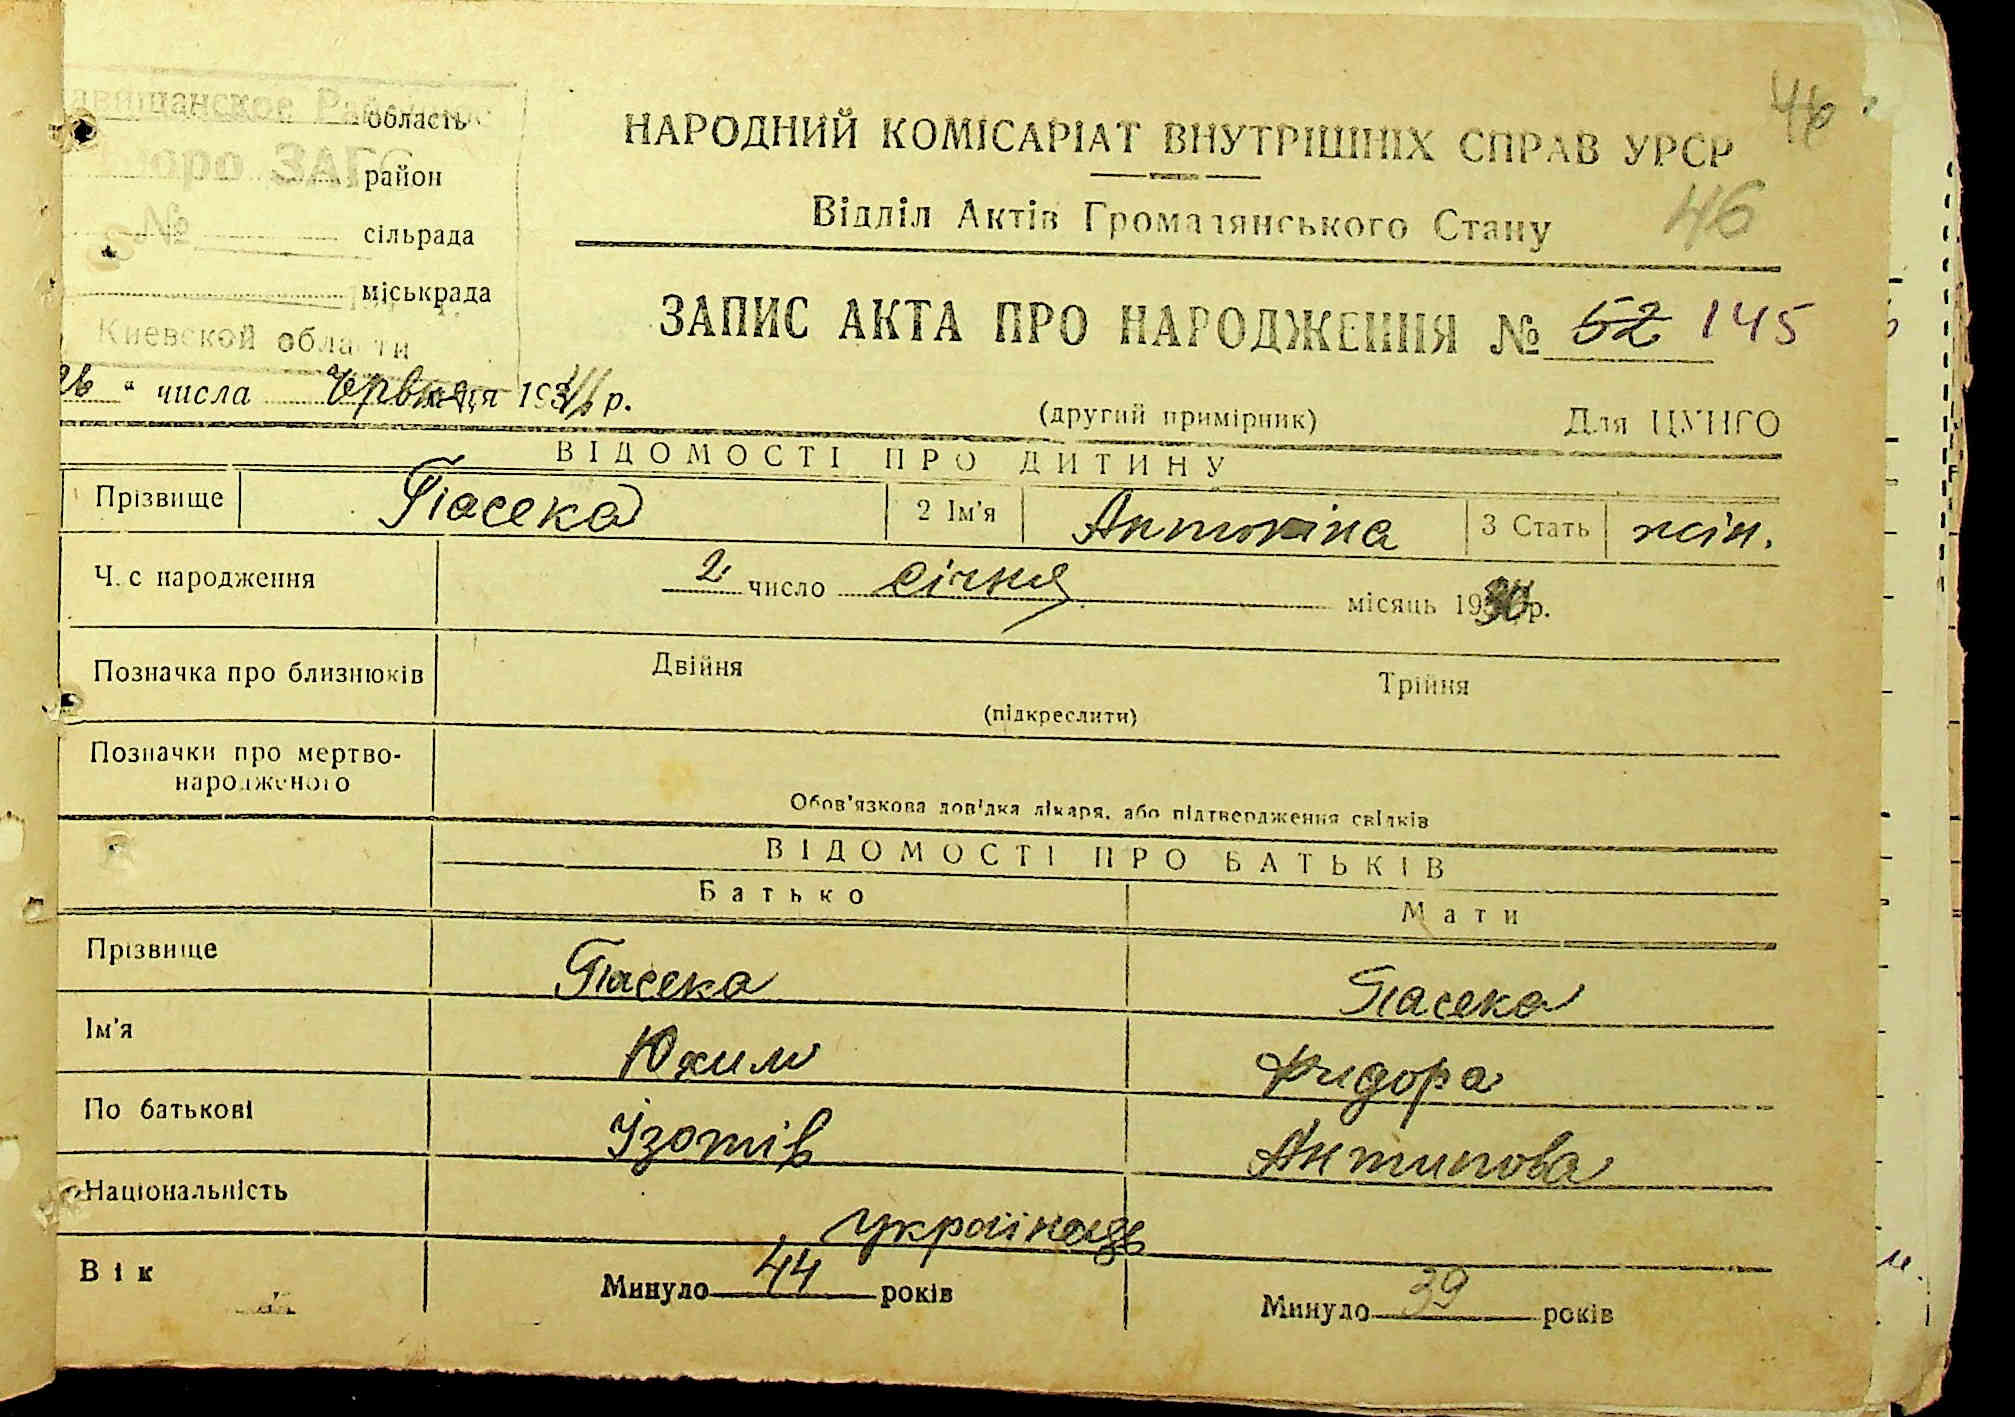 46
НАРОДНИЙ КОМІСАРІАТ ВНУТРІШНІХ СПРАВ УРСР
область
Бюро ЗАГС
район
Відділ Актів Громадянського Стану
46
№ сільрада
міськрада
Киевской области
ЗАПИС АКТА ПРО НАРОДЖЕННЯ № 52 145
26 " числа Червня ця 1946 р.
(другий примірник)
Для ЦУНГО
ВІДОМОСТІ ПРО ДИТИНУ
Прізвище Пасека 2 Ім'я Антоніна 3 Стать жін.
Ч. с народження 2 число січня місяць 19 р.
Позначка про близнюків Двійня Трійня
(підкреслити)
Позначки про мертво-
народженого
Обов'язкова довідка лікаря, або підтвердження свідків
ВІДОМОСТІ ПРО БАТЬКІВ
Батько Мати
Прізвище Пасека Пасека
Ім'я Юхим Хидора
По батькові Ізотів Антипова
Національність українець
Вік Минуло 44 років Минуло 39 років